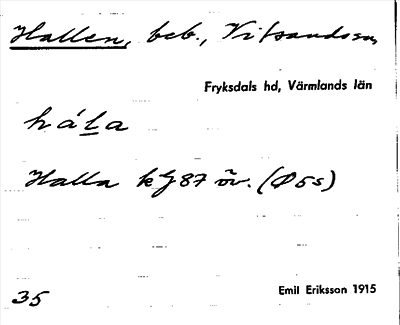 Hallen, beb., Vitsands sn,
Fryksdals hd, Värmlands län
háḻa
Halla kG87 öv. (Ø5s)
35
Emil Eriksson 1915